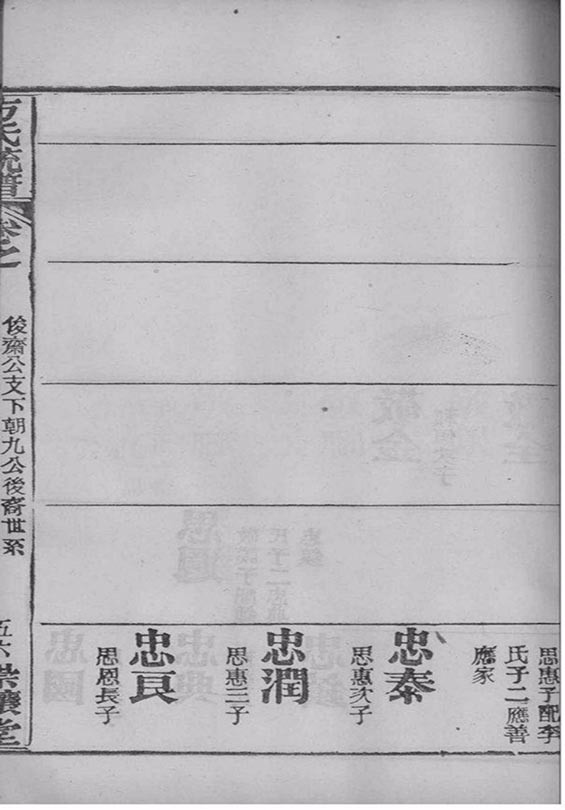 思惠子配李
氏子二應善
應家
忠泰
思惠次子
忠潤
思惠三子
忠良
思恩長子
方氏統譜
卷之
俊齋公支下朝九公後裔世系
五六